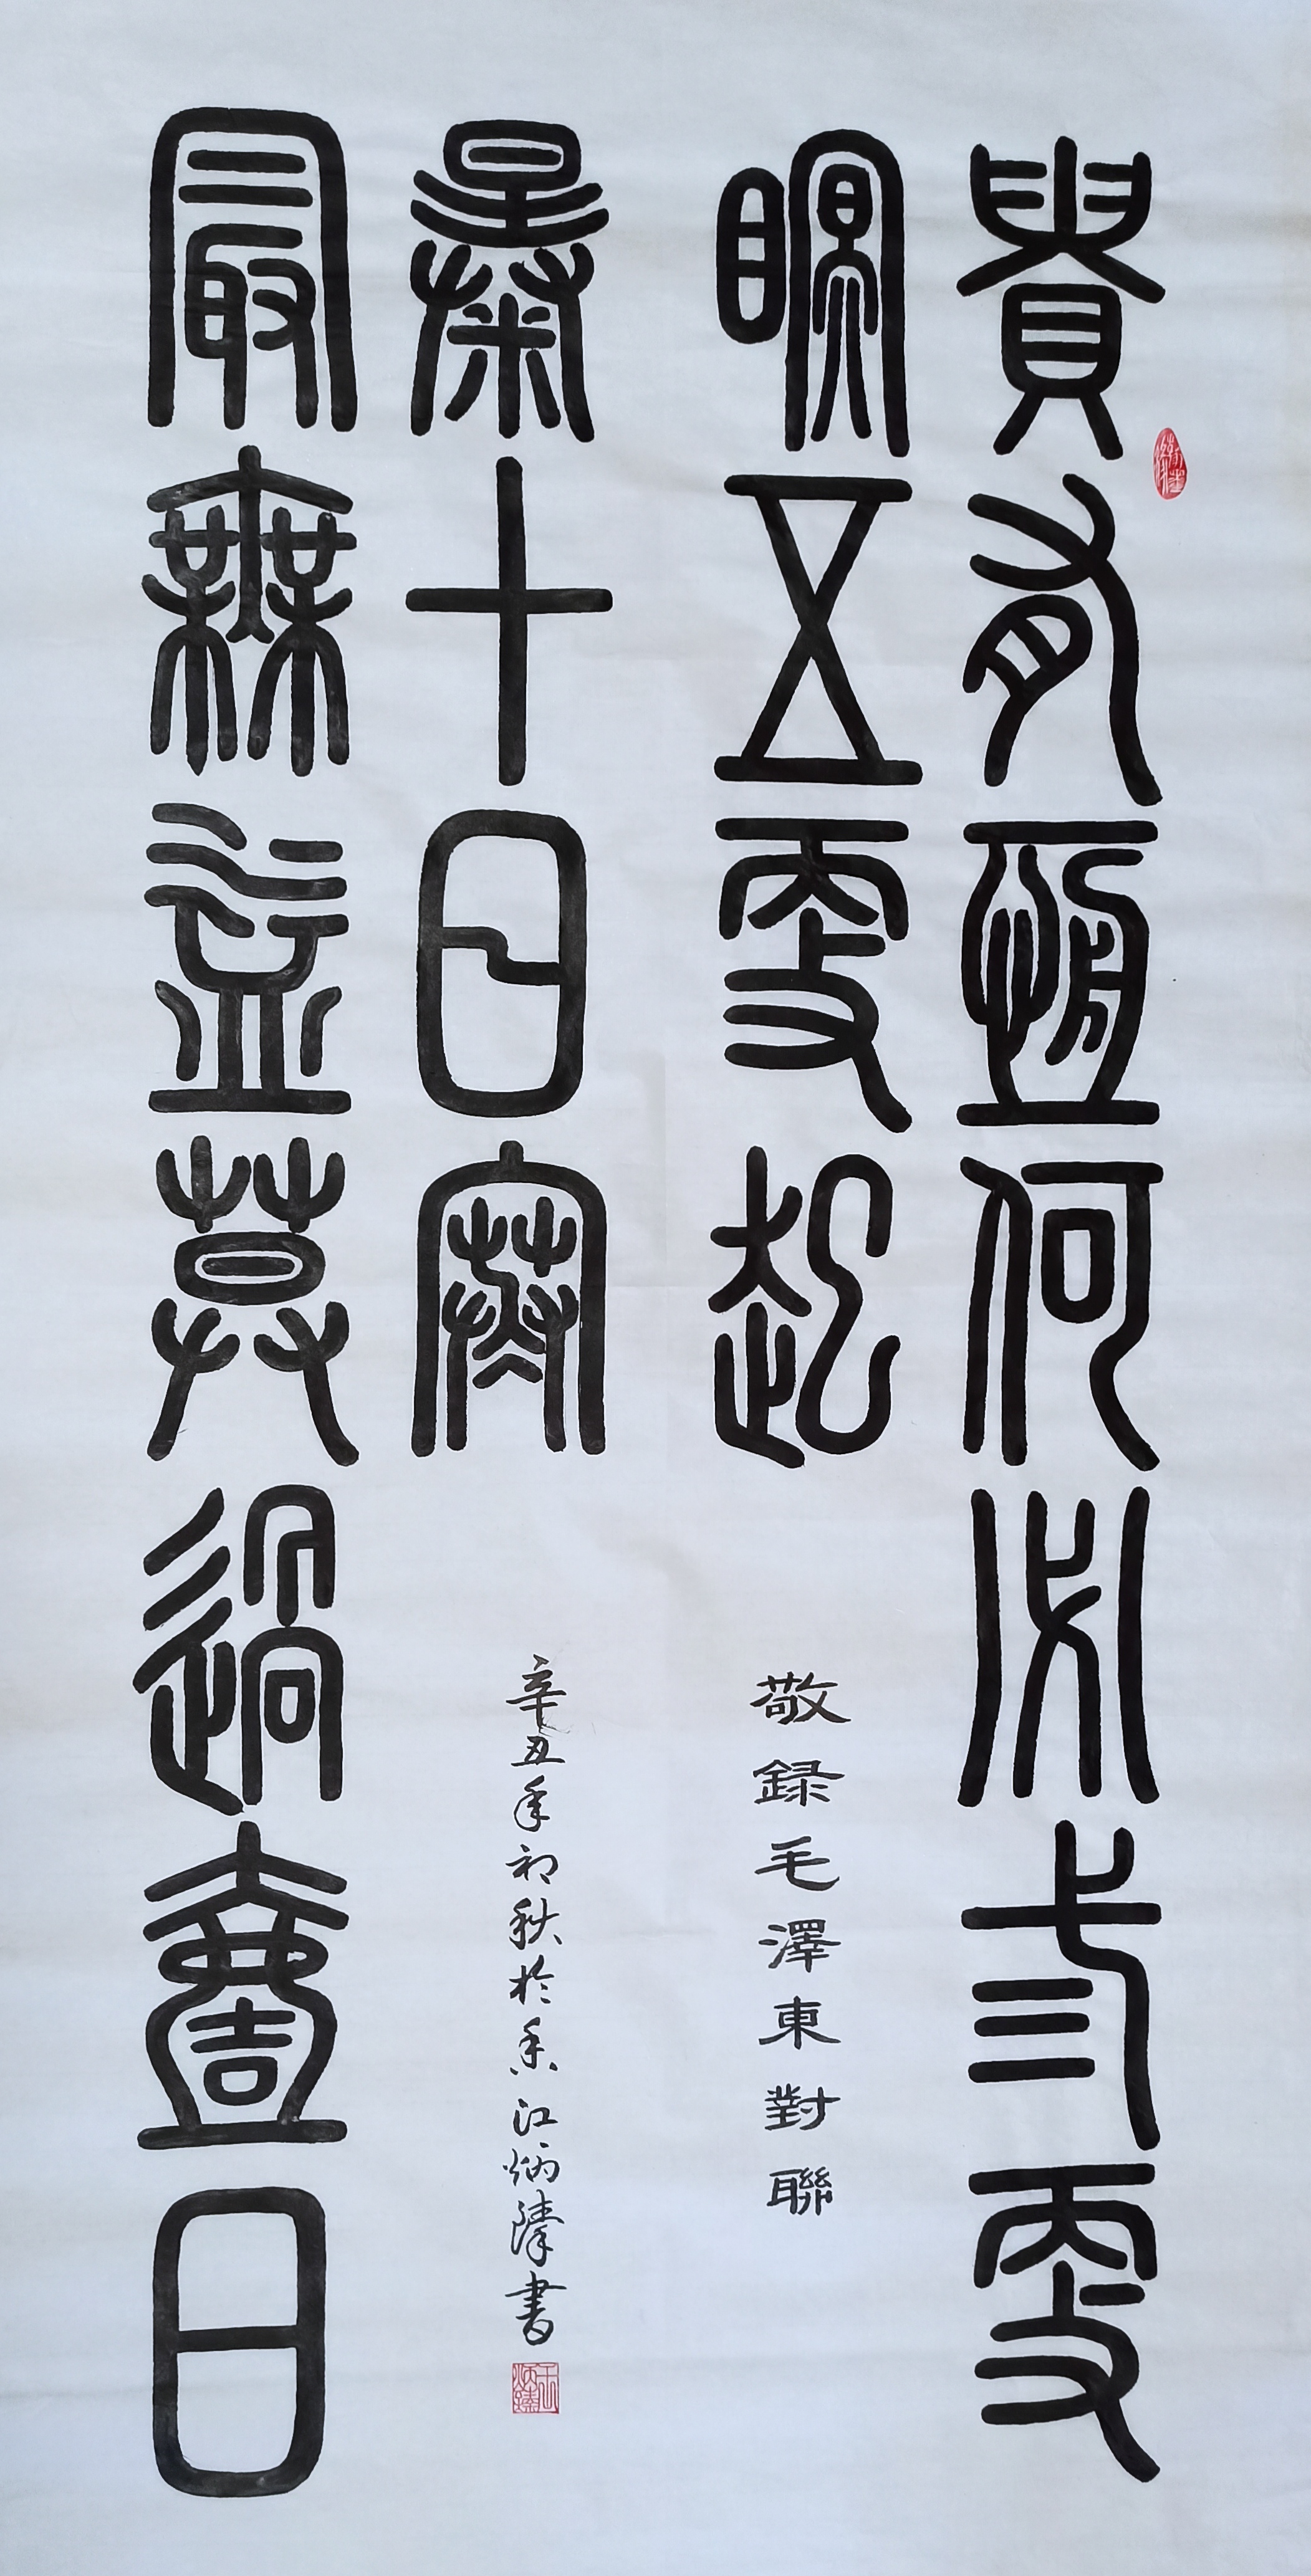 貴有恆何必弎更
瞑五更起
敬録毛澤東對聯
最無益莫過壹日
暴十日寒
辛丑年初秋於香江炳書